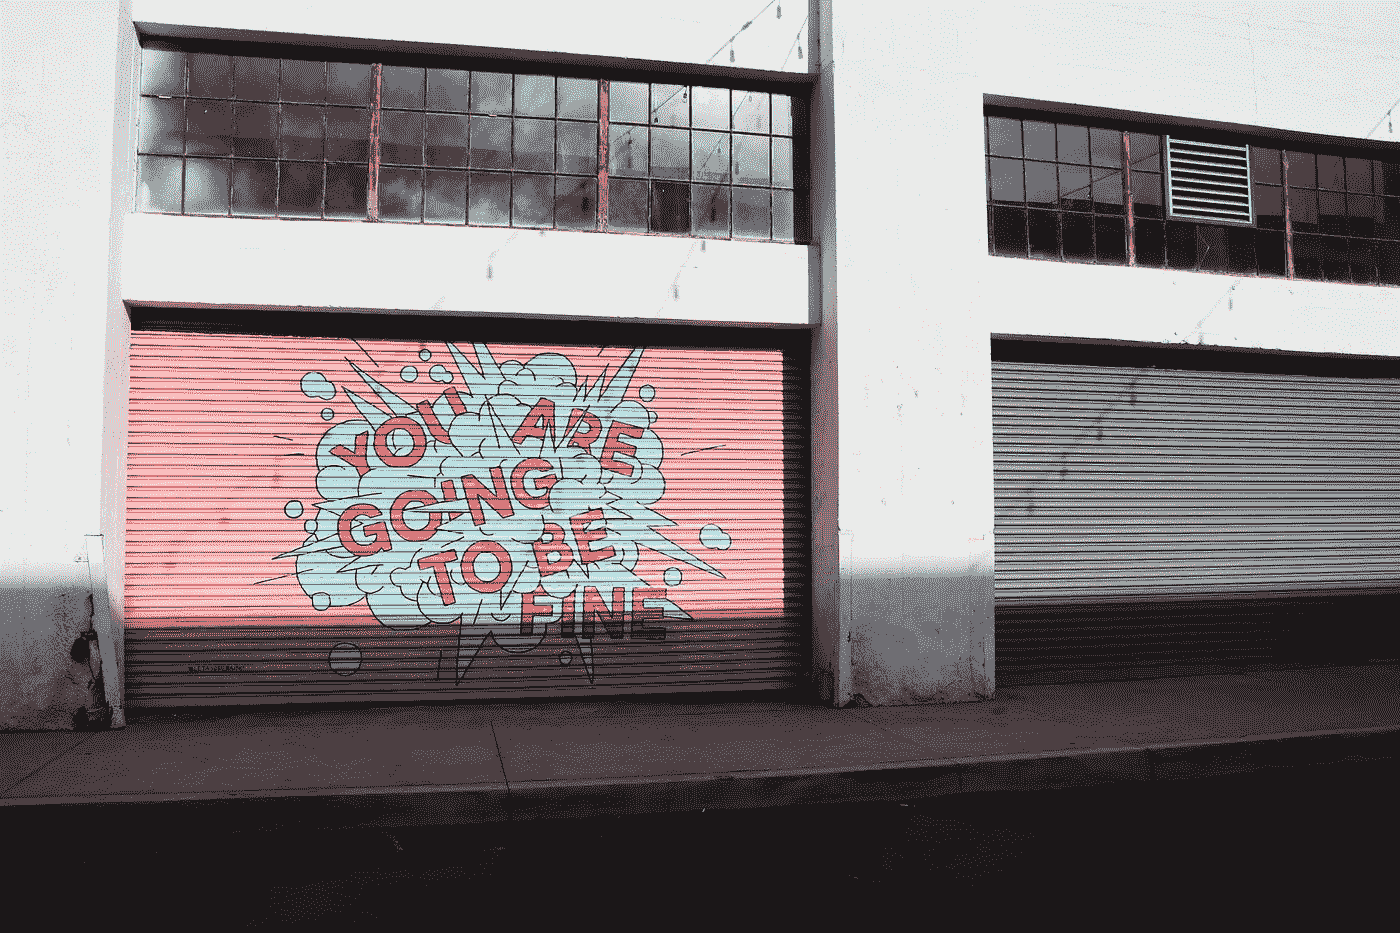 YOU ARE
GOING
TO BE
FINE